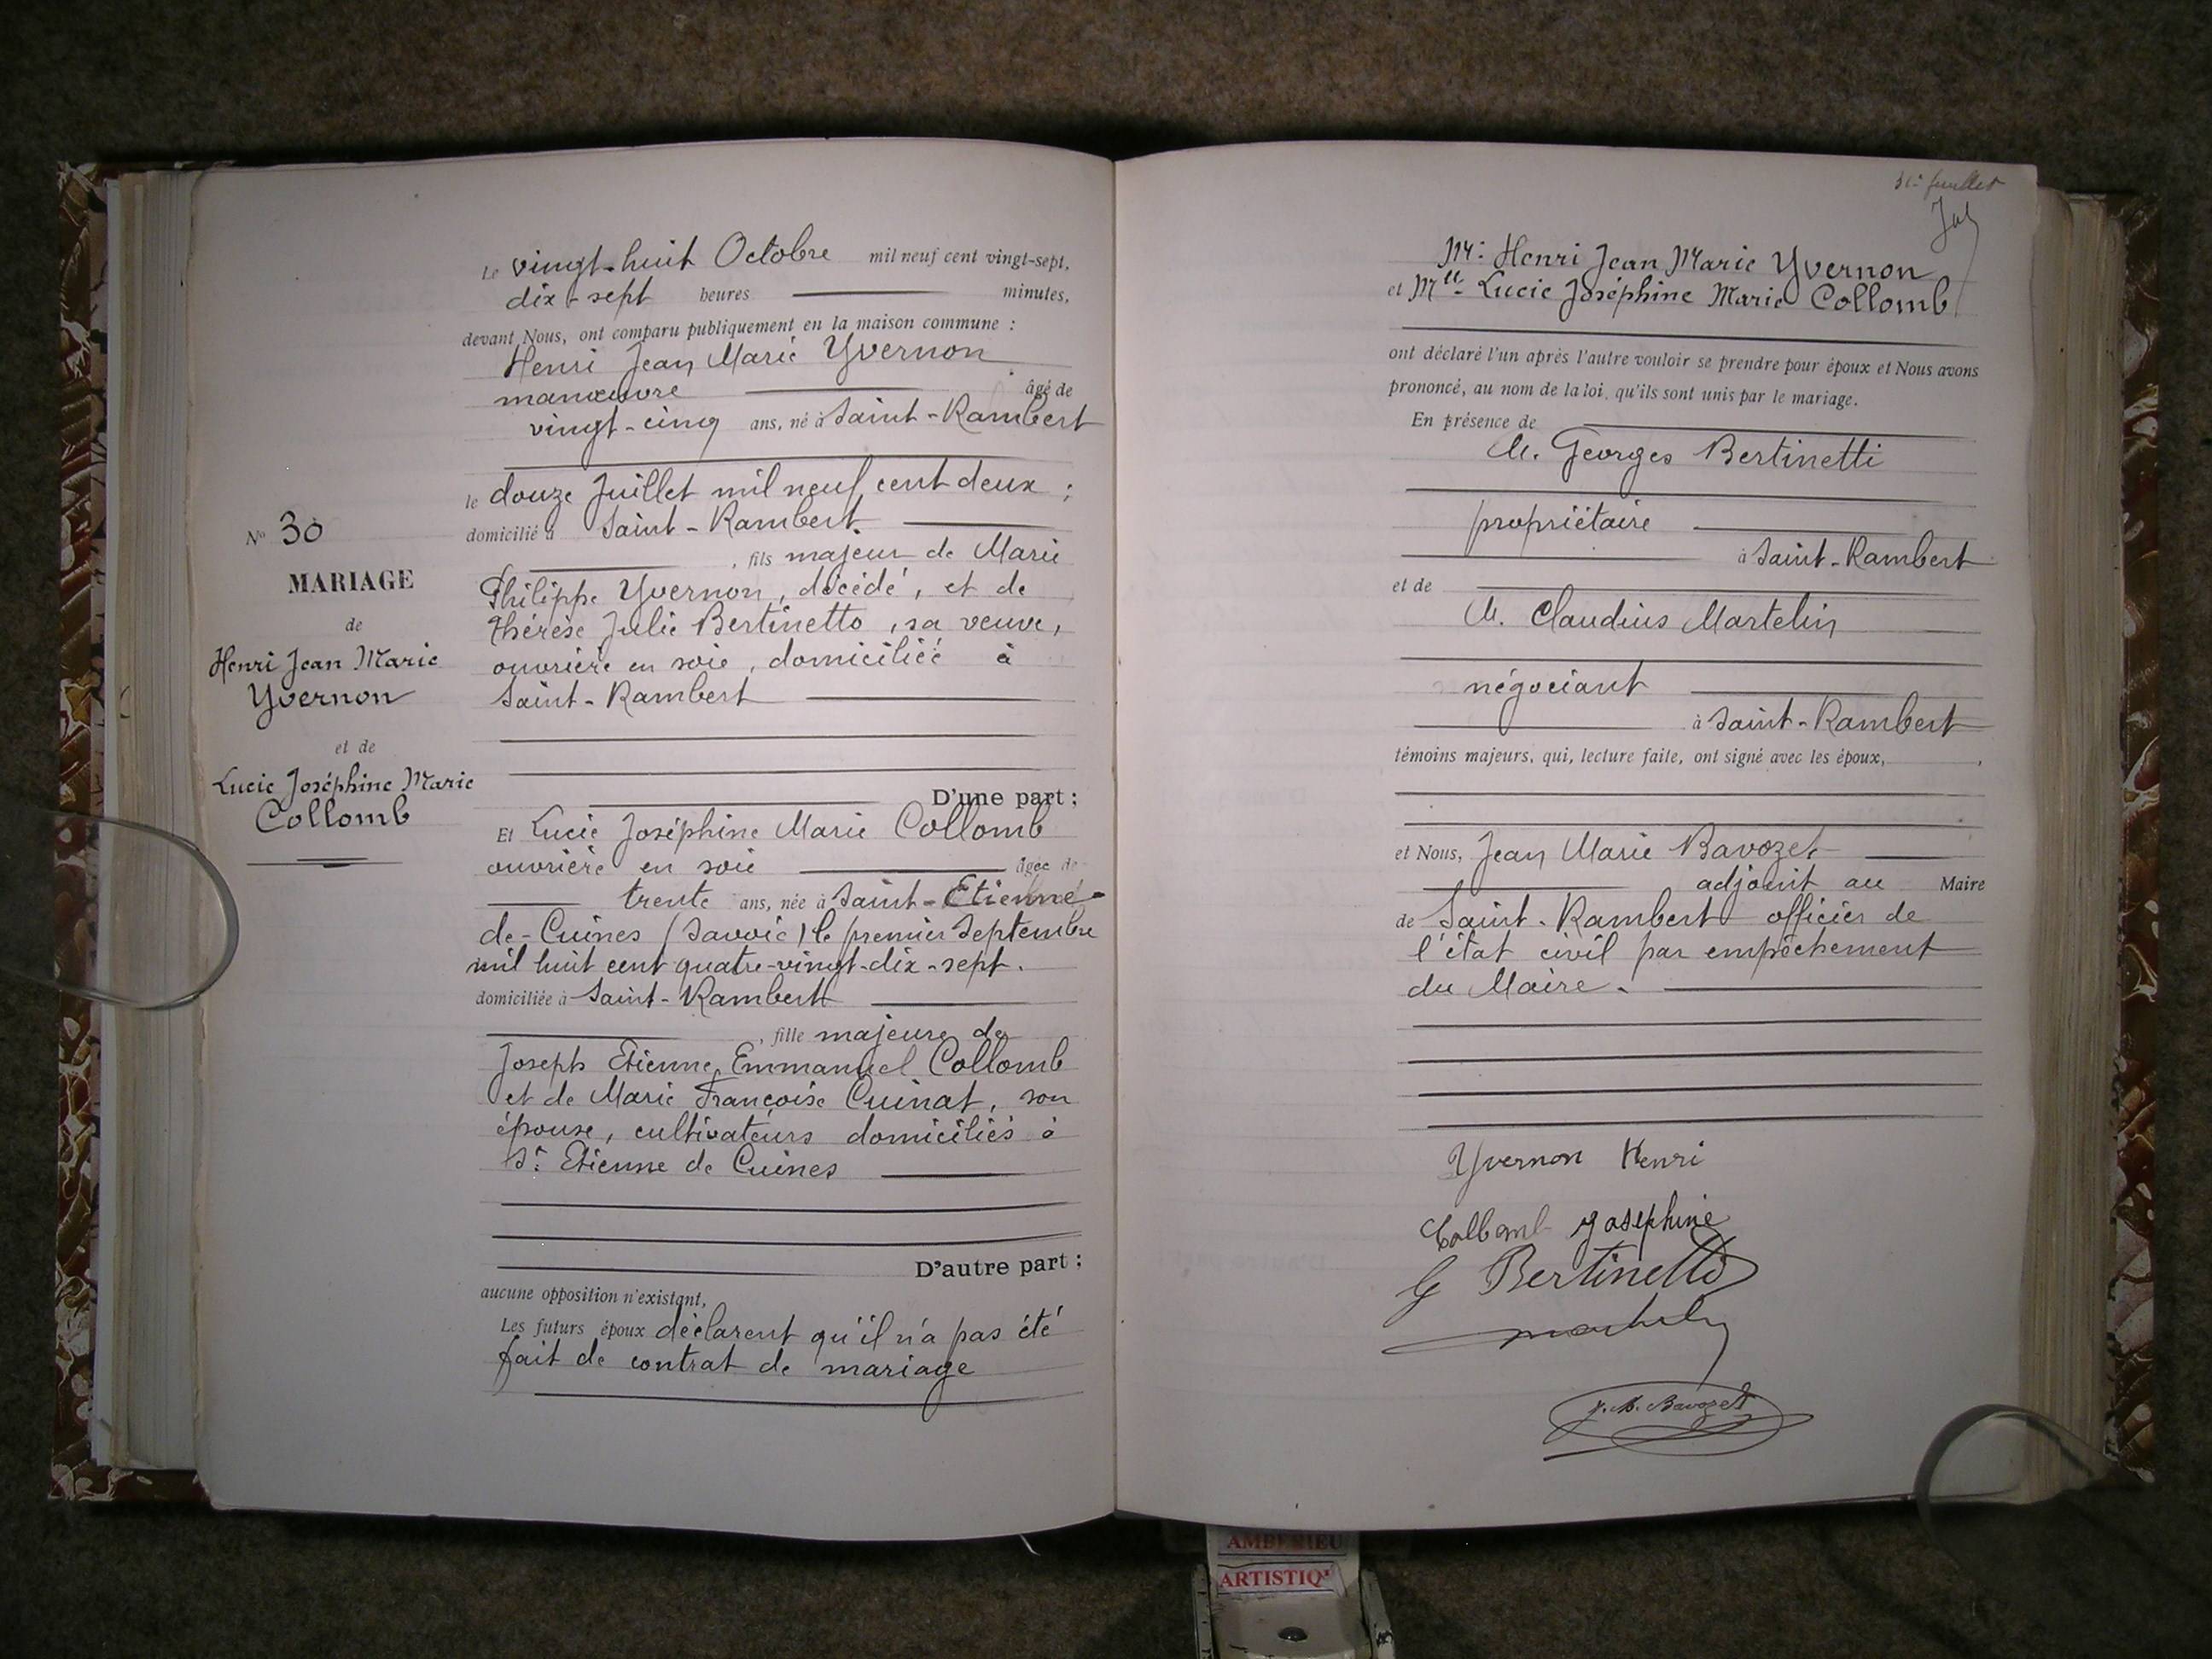 Le vingt-huit Octobre mil neuf cent vingt-sept,
dix-sept heures minutes,
devant Nous, ont comparu publiquement en la maison commune :
Henri Jean Marie Yvernon
manœuvre âgé de
vingt-cinq ans, né à Saint-Rambert
le douze Juillet mil neuf cent deux ;
domicilié à Saint-Rambert
, fils majeur de Marie
Philippe Yvernon, décédé, et de
Thérèse Julie Bertinetto, sa veuve,
ouvrière en soie, domiciliée à
Saint-Rambert
D'une part ;
Et Lucie Joséphine Marie Collomb
ouvrière en soie âgée de
trente ans, née à Saint-Etienne-
de-Cuines (Savoie) le premier Septembre
mil huit cent quatre-vingt-dix-sept.
domiciliée à Saint-Rambert
, fille majeure de
Joseph Etienne Emmanuel Collomb
et de Marie Françoise Cuinat, son
épouse, cultivateurs domiciliés à
St Etienne de Cuines
D'autre part ;
aucune opposition n'existant,
Les futurs époux déclarent qu'il n'a pas été
fait de contrat de mariage
No 30
MARIAGE
de
Henri Jean Marie
Yvernon
et de
Lucie Joséphine Marie
Collomb
31e feuillet
Mr Henri Jean Marie Yvernon
et Mlle Lucie Joséphine Marie Collomb
ont déclaré l'un après l'autre vouloir se prendre pour époux et Nous avons
prononcé, au nom de la loi, qu'ils sont unis par le mariage.
En présence de
M. Georges Bertinetti
propriétaire
à Saint-Rambert
et de
M. Claudius Martelin
négociant
à Saint-Rambert
témoins majeurs, qui, lecture faite, ont signé avec les époux, ,
et Nous, Jean Marie Bavozet
adjoint au Maire
de Saint-Rambert officier de
l'état civil par empêchement
du Maire.
Yvernon Henri
Collomb Josephine
G Bertinetto
Martelin
J. M. Bavozet
AMBERIEU
ARTISTIQ